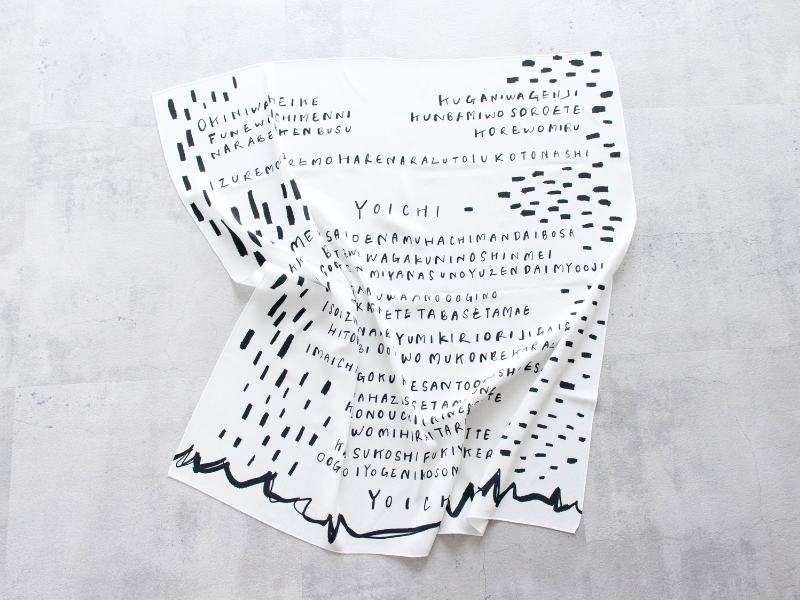 OKINIWA HEIKE
FUNEWO ICHIMENNI
NARABE KENBUSU
KUGANIWAGENJI
KUNBAMIWOSOROETE
KOREWOMIRU
IZUREMO REMOHARENARAZUTOIUKOTONASHI
YOICHI
SAIDENAMUHACHIMANDAIBOSA
WAGAKUNINOSHINMEI
MIYANASUNOYUZENDAIMYOOJI
UWAANOOOGINO
ETETABASETAMAE
YUMIKIRIORIJIGAIS
WO MUKONBEKARA
IMAICH GOKU ESANTO
SETAM
ONOUCHI
WOMIHIRAITAR TTE
SUKOSHIFUKIYKER
OOG IYOGENIKOSON
YOICH